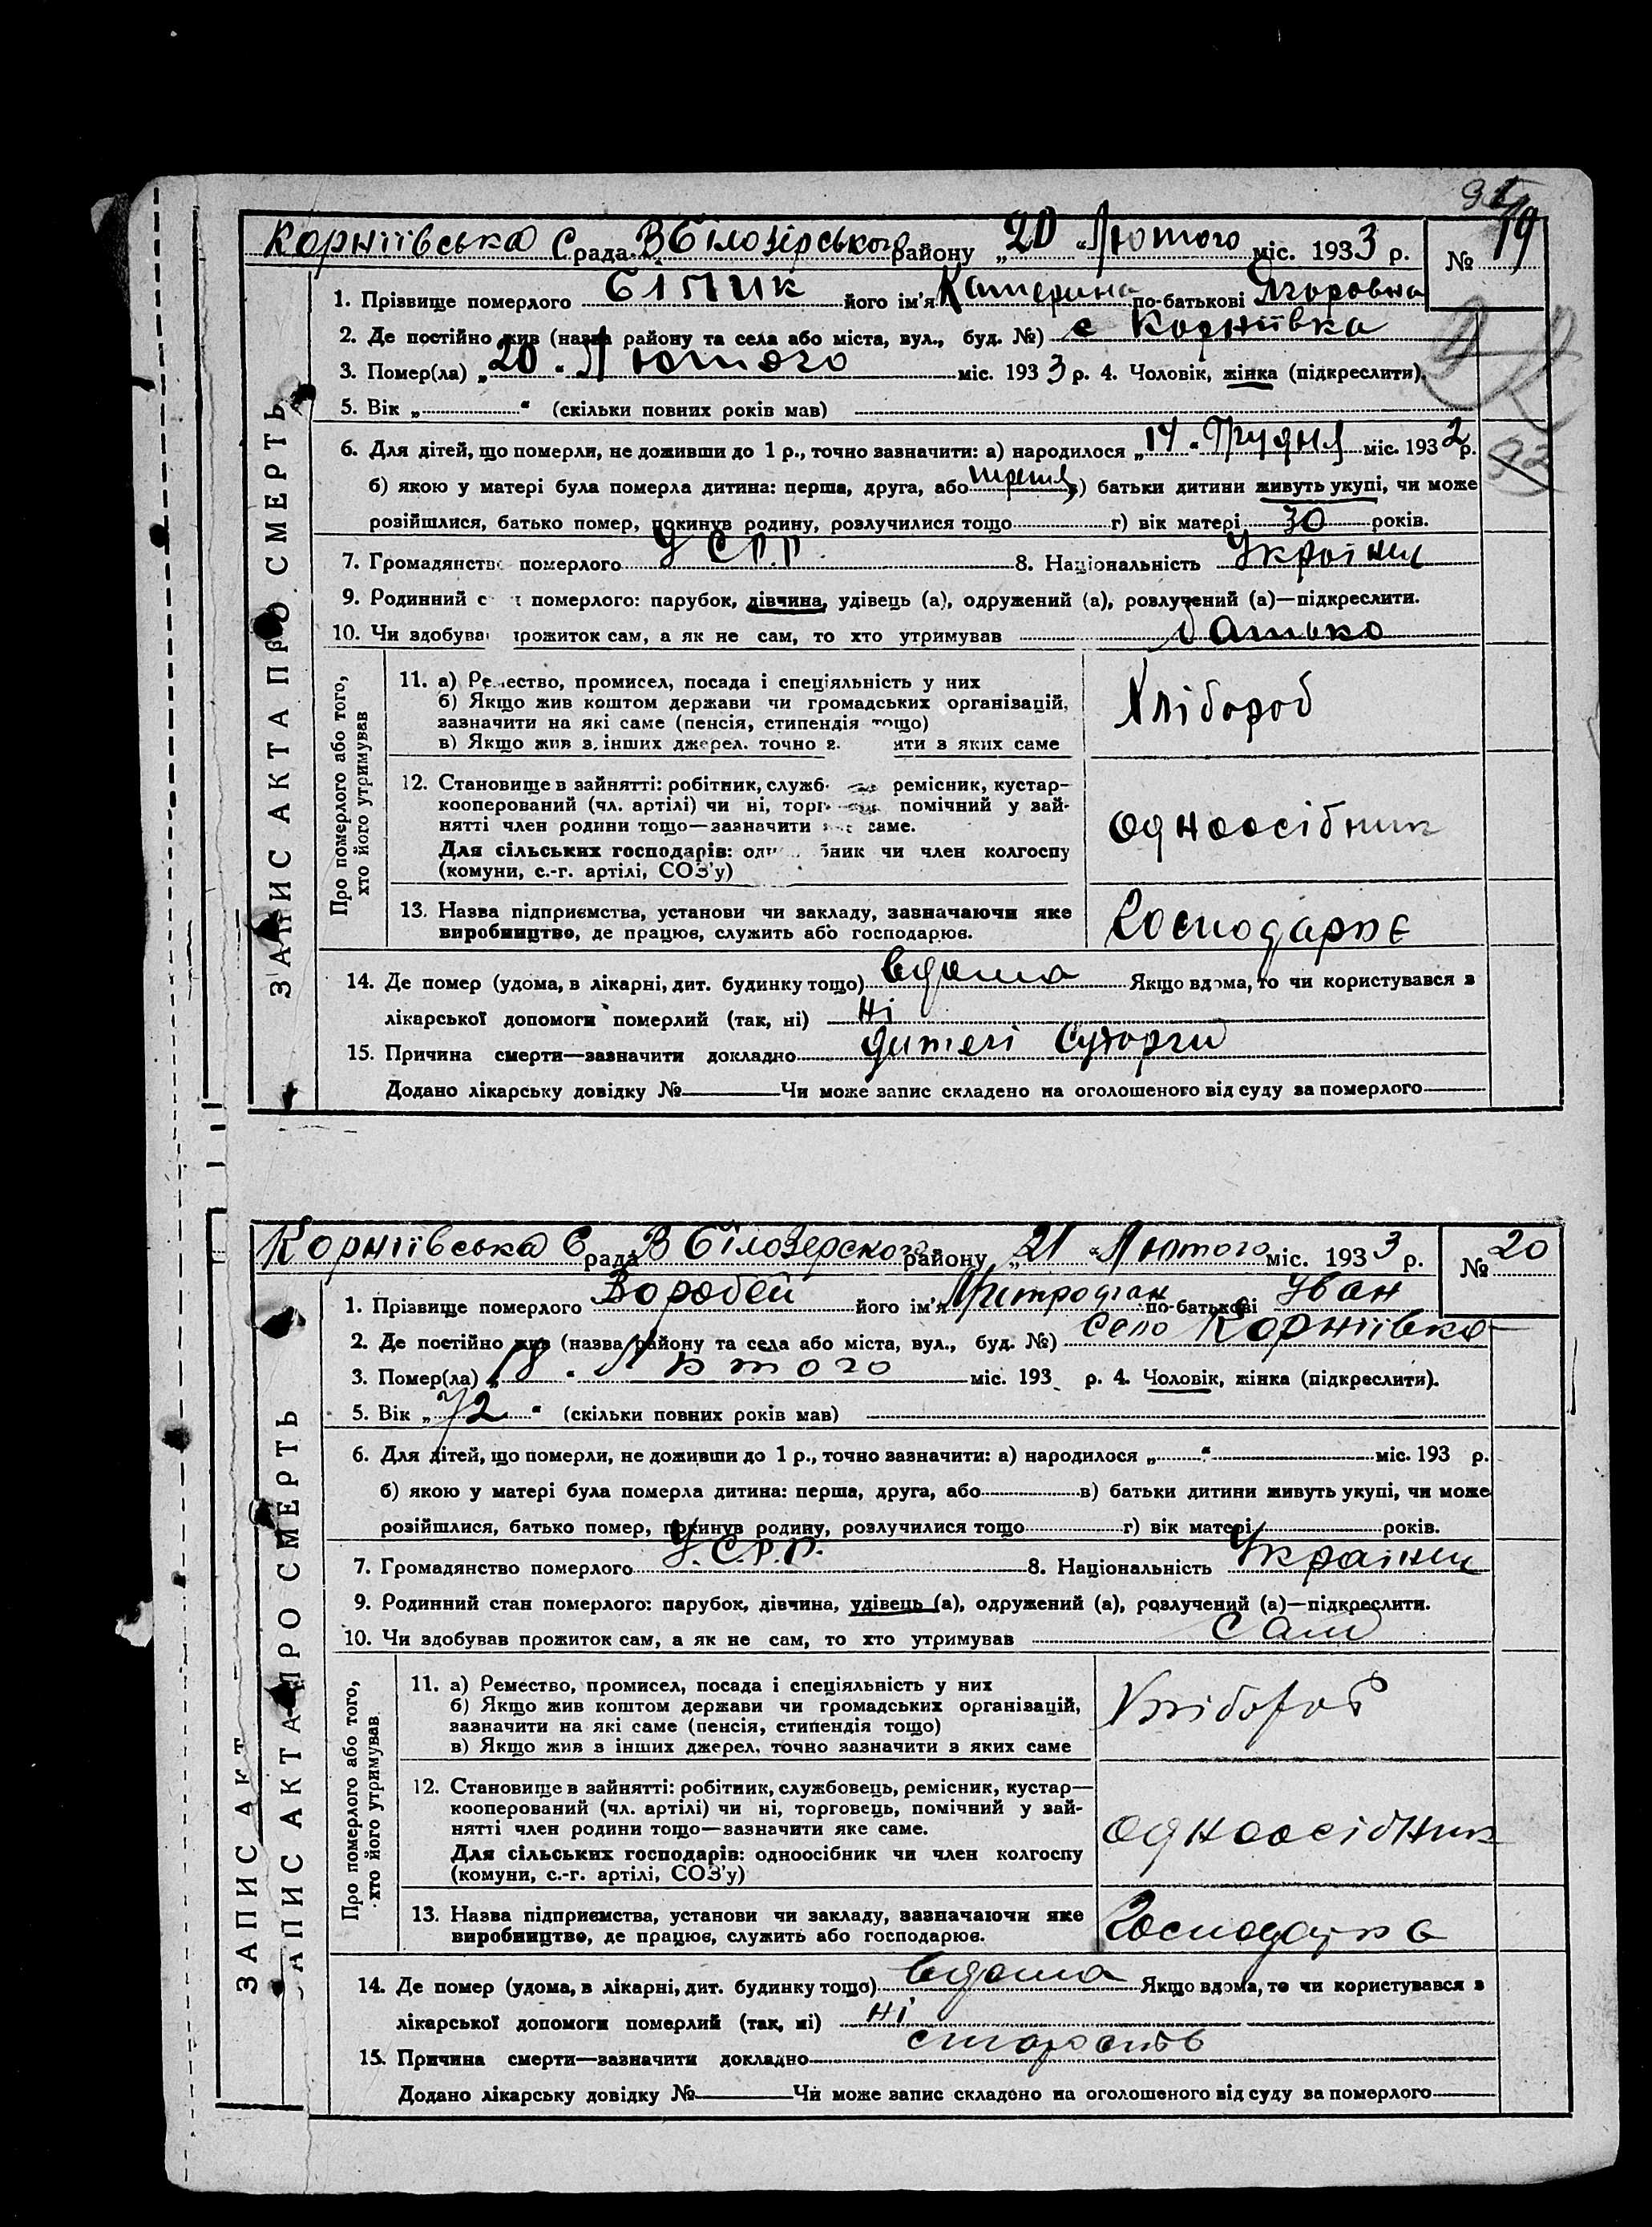 19
Корніівська С рада В Білозірського району „20“ Лютого міс. 1933 р. №
1. Прізвище померлого Білик його ім'я Катерина по-батькові Ягоровна
2. Де постійно жив (назва району та села або міста, вул., буд. №) с Корніівка
3. Помер(ла) „20“ Лютого міс. 1933 р. 4. Чоловік, жінка (підкреслити).
5. Вік „ “ (скільки повних років мав)
6. Для дітей, що померли, не доживши до 1 р., точно зазначити: а) народилося „14“ Грудня міс. 1932 р.
б) якою у матері була померла дитина: перша, друга, або третя в) батьки дитини живуть укупі, чи може
розійшлися, батько помер, покинув родину, розлучилися тощо г) вік матері 30 років.
7. Громадянство померлого УСРР 8. Національність Українц
9. Родинний с т померлого: парубок, дівчина, удівець (а), одружений (а), розлучений (а)—підкреслити.
10. Чи здобував прожиток сам, а як не сам, то хто утримував батько
ЗАПИС АКТА ПРО СМЕРТЬ
Про померлого або того,
хто його утримував
11. а) Ремество, промисел, посада і спеціяльність у них
б) Якщо жив коштом держави чи громадських організацій,
зазначити на які саме (пенсія, стипендія тощо)
в) Якщо жив з інших джерел, точно з ити з яких саме
Хлібороб
12. Становище в зайнятті: робітник, служб ремісник, кустар—
кооперований (чл. артілі) чи ні, торг помічний у зай-
нятті член родини тощо—зазначити яке саме.
Для сільських господарів: одн бник чи член колгоспу
(комуни, с.-г. артілі, СОЗ'у)
одноосібник
13. Назва підприємства, установи чи закладу, зазначаючи яке
виробництво, де працює, служить або господарює.
Господарює
14. Де помер (удома, в лікарні, дит. будинку тощо) вдома Якщо вдома, то чи користувався з
лікарської допомоги померлий (так, ні) ні
15. Причина смерти—зазначити докладно дитячі
Додано лікарську довідку № Чи може запис складено на оголошеного від суду за померлого
Корніівська С рада В Білозерского району „21“ Лютого міс. 1933 р. № 20
1. Прізвище померлого Воробей його ім'я Митродіан по-батькові Іван
2. Де постійно жив (назва району та села або міста, вул., буд. №) село Корніівка
3. Помер(ла) „18“ Лютого міс. 193 р. 4. Чоловік, жінка (підкреслити).
5. Вік „72“ (скільки повних років мав)
6. Для дітей, що померли, не доживши до 1 р., точно зазначити: а) народилося „ “ міс. 193 р.
б) якою у матері була померла дитина: перша, друга, або в) батьки дитини живуть укупі, чи може
розійшлися, батько помер, покинув родину, розлучилися тощо г) вік матері років.
7. Громадянство померлого У.С.Р.Р. 8. Національність Українц
9. Родинний стан померлого: парубок, дівчина, удівець (а), одружений (а), розлучений (а)—підкреслити.
10. Чи здобував прожиток сам, а як не сам, то хто утримував сам
ЗАПИС АКТ
ЗАПИС АКТА ПРО СМЕРТЬ
Про померлого або того,
хто його утримував
11. а) Ремество, промисел, посада і спеціяльність у них
б) Якщо жив коштом держави чи громадських організацій,
зазначити на які саме (пенсія, стипендія тощо)
в) Якщо жив з інших джерел, точно зазначити з яких саме
Хлібороб
12. Становище в зайнятті: робітник, службовець, ремісник, кустар—
кооперований (чл. артілі) чи ні, торговець, помічний у зай-
нятті член родини тощо—зазначити яке саме.
Для сільських господарів: одноосібник чи член колгоспу
(комуни, с.-г. артілі, СОЗ'у)
одноосібник
13. Назва підприємства, установи чи закладу, зазначаючи яке
виробництво, де працює, служить або господарює.
Господарює
14. Де помер (удома, в лікарні, дит. будинку тощо) вдома Якщо вдома, то чи користувався з
лікарської допомоги померлий (так, ні) ні
15. Причина смерти—зазначити докладно старость
Додано лікарську довідку № Чи може запис складено на оголошеного від суду за померлого